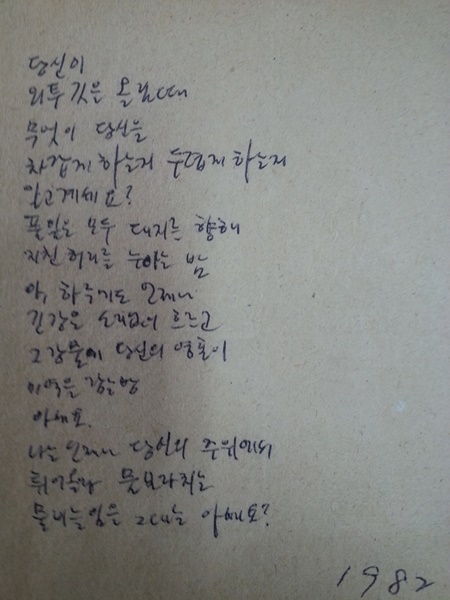 당신이
외투 깃은 올릴때
무엇이 당신을
차갑게 하는지 두렵게 하는지
알고계세요?
풀잎은 모두 대지를 향해
지친 허리를 눕히는 밤
아, 하늘에도 언제나
긴강은 소리없이 흐르고
그강물에 당신의 영혼이
미역을 감는밤
아세요.
나는 언제나 당신의 주위에서
튀어올라 물보라치는
물내늘임을 그대는 아세요?
1982